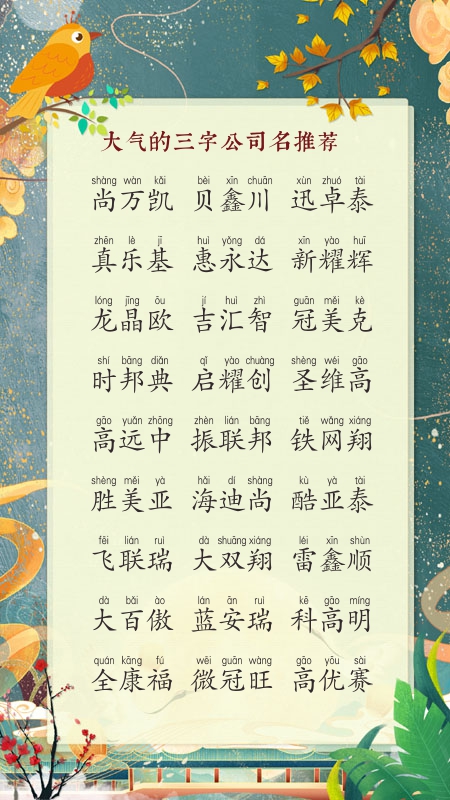 大气的三字公司名推荐
shàng wàn kǎi bèi xīn chuān xùn zhuó tài
尚万凯 贝鑫川 迅卓泰
zhēn lè jī huì yǒng dá xīn yào huī
真乐基 惠永达 新耀辉
lóng jīng ōu jí huì zhì guān měi kè
龙晶欧 吉汇智 冠美克
shí bāng diǎn qǐ yào chuàng shèng wéi gāo
时邦典 启耀创 圣维高
gāo yuǎn zhōng zhèn lián bāng tiě wǎng xiáng
高远中 振联邦 铁网翔
shèng měi yà hǎi dí shàng kù yà tài
胜美亚 海迪尚 酷亚泰
fēi lián ruì dà shuāng xiáng léi xīn shùn
飞联瑞 大双翔 雷鑫顺
dà bǎi ào lán ān ruì kē gāo míng
大百傲 蓝安瑞 科高明
quán kāng fú wēi guān wàng gāo yōu sài
全康福 微冠旺 高优赛